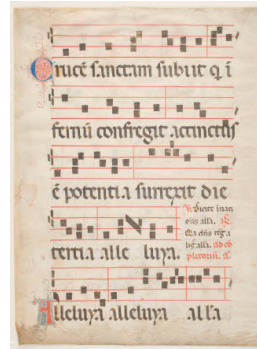 Crucē sanctam subiit q̄ ī
fernū confregit accinctus
ē potentia surrexit die
tertia alle luya.
Alleluya alleluya alla